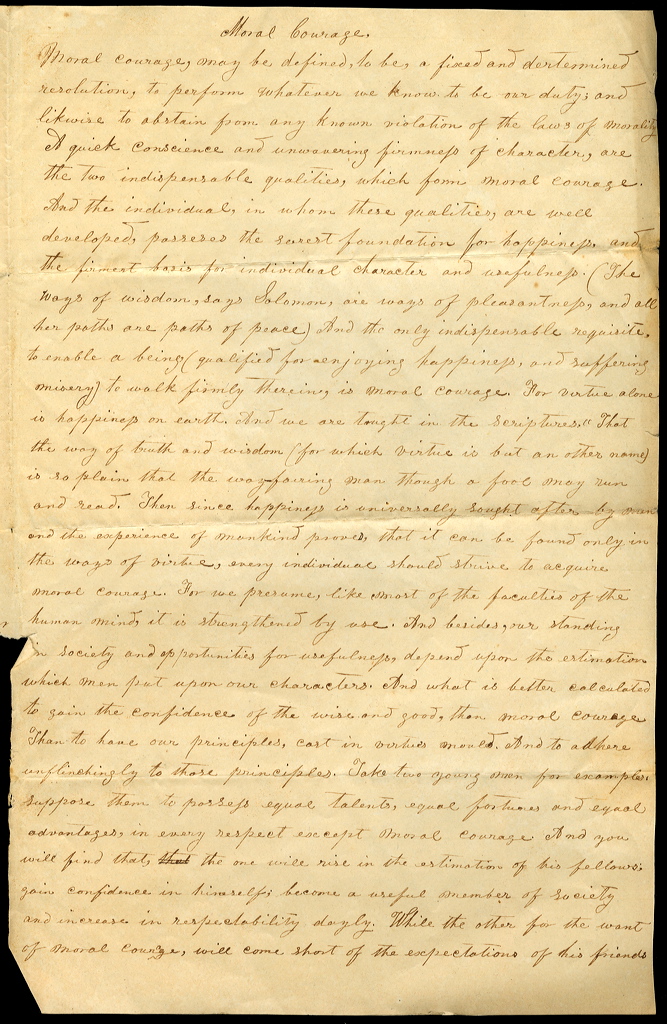 Moral Courage,
Moral courage, may be defined, to be, a fixed and dertermined
resolution, to perform whatever we know to be our duty; and
likwise to abstain from any known violation of the laws of morality
A quick conscience and unwavering firmness of character, are
the two indispensable qualities, which form moral courage.
And the individual, in whom these qualities, are well
developed, posseses the surest foundation for happiness, and
the firmest basis for individual character and usefulness. (The
ways of wisdom, says Solomon, are ways of pleasantness, and all
her paths are paths of peace) And the only indispensable requisite,
to enable a being (qualified for enjoying happiness, and suffering
misery) to walk firmly therein, is moral courage. For virtue alone
is happiness on earth. And we are taught in the scriptures." That
the way of truth and wisdom (for which virtue is but an other name)
is so plain that the wayfairing man though a fool may run
and read. Then since happiness is universally sought after by man
and the experience of mankind proves, that it can be found only in
the ways of virtue, every individual should strive to acquire
moral courage. For we presume, like most of the faculties of the
human mind, it is strengthened by use. And besides, our standing
in society and opportunities for usefulness, depend upon the estimation
which men put upon our characters. And what is better calculated
to gain the confidence of the wise and good, than moral courage
Than to have our principles, cast in virtues mould. And to adhere
unflinchingly to those principles. Take two young men for example.
suppose them to possess equal talents, equal fortunes and equal
advantages, in every respect except moral courage And you
will find that, that the one will rise in the estimation of his fellows;
gain confidence in himself; become a useful member of society
and increase in respectability dayly. While the other for the want
of moral courage, will come short of the expectations of his friends